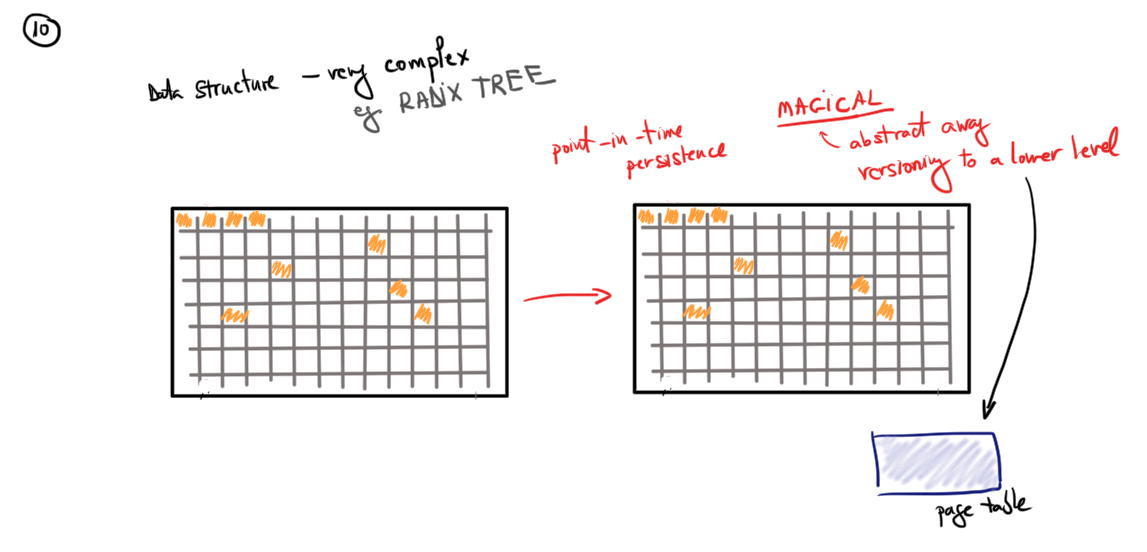 10
Data structure – very complex
eg RADIX TREE
point-in-time
persistence
MAGICAL
abstract away
versioning to a lower level
page table